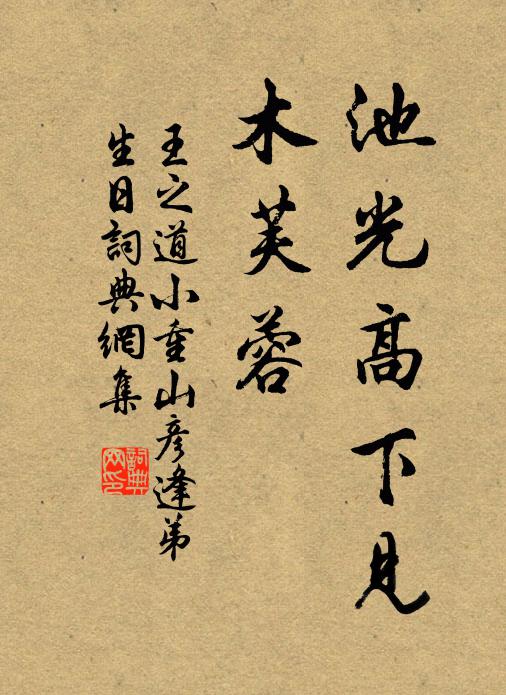 池光高下見
木芙蓉
王之道小重山彥逢弟
生日詞典網集
詞典
网印